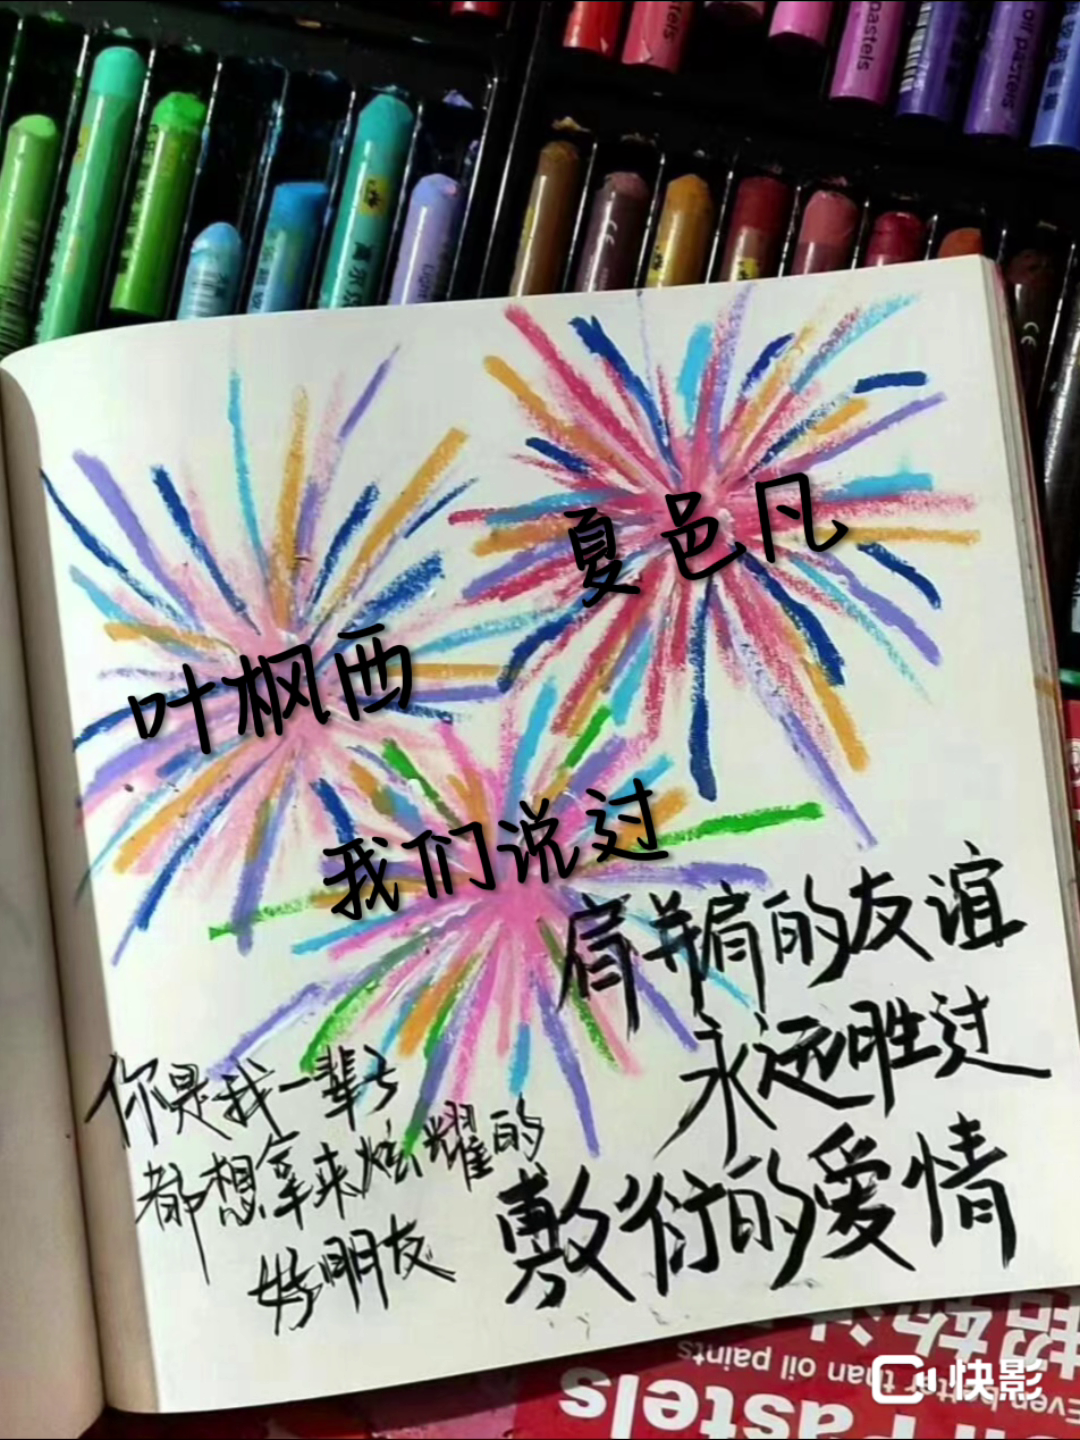 oil pastels
夏邑凡
叶枫西
我们说过
肩并肩的友谊
永远胜过
敷衍的爱情
你是我一辈子
都想拿来炫耀的
好朋友
Even better than oil paints
Pastels
快影